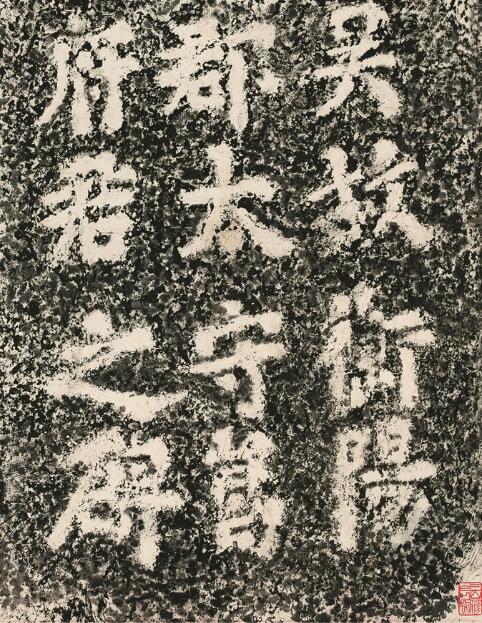 吳故衡陽
郡大守葛
府君之碑